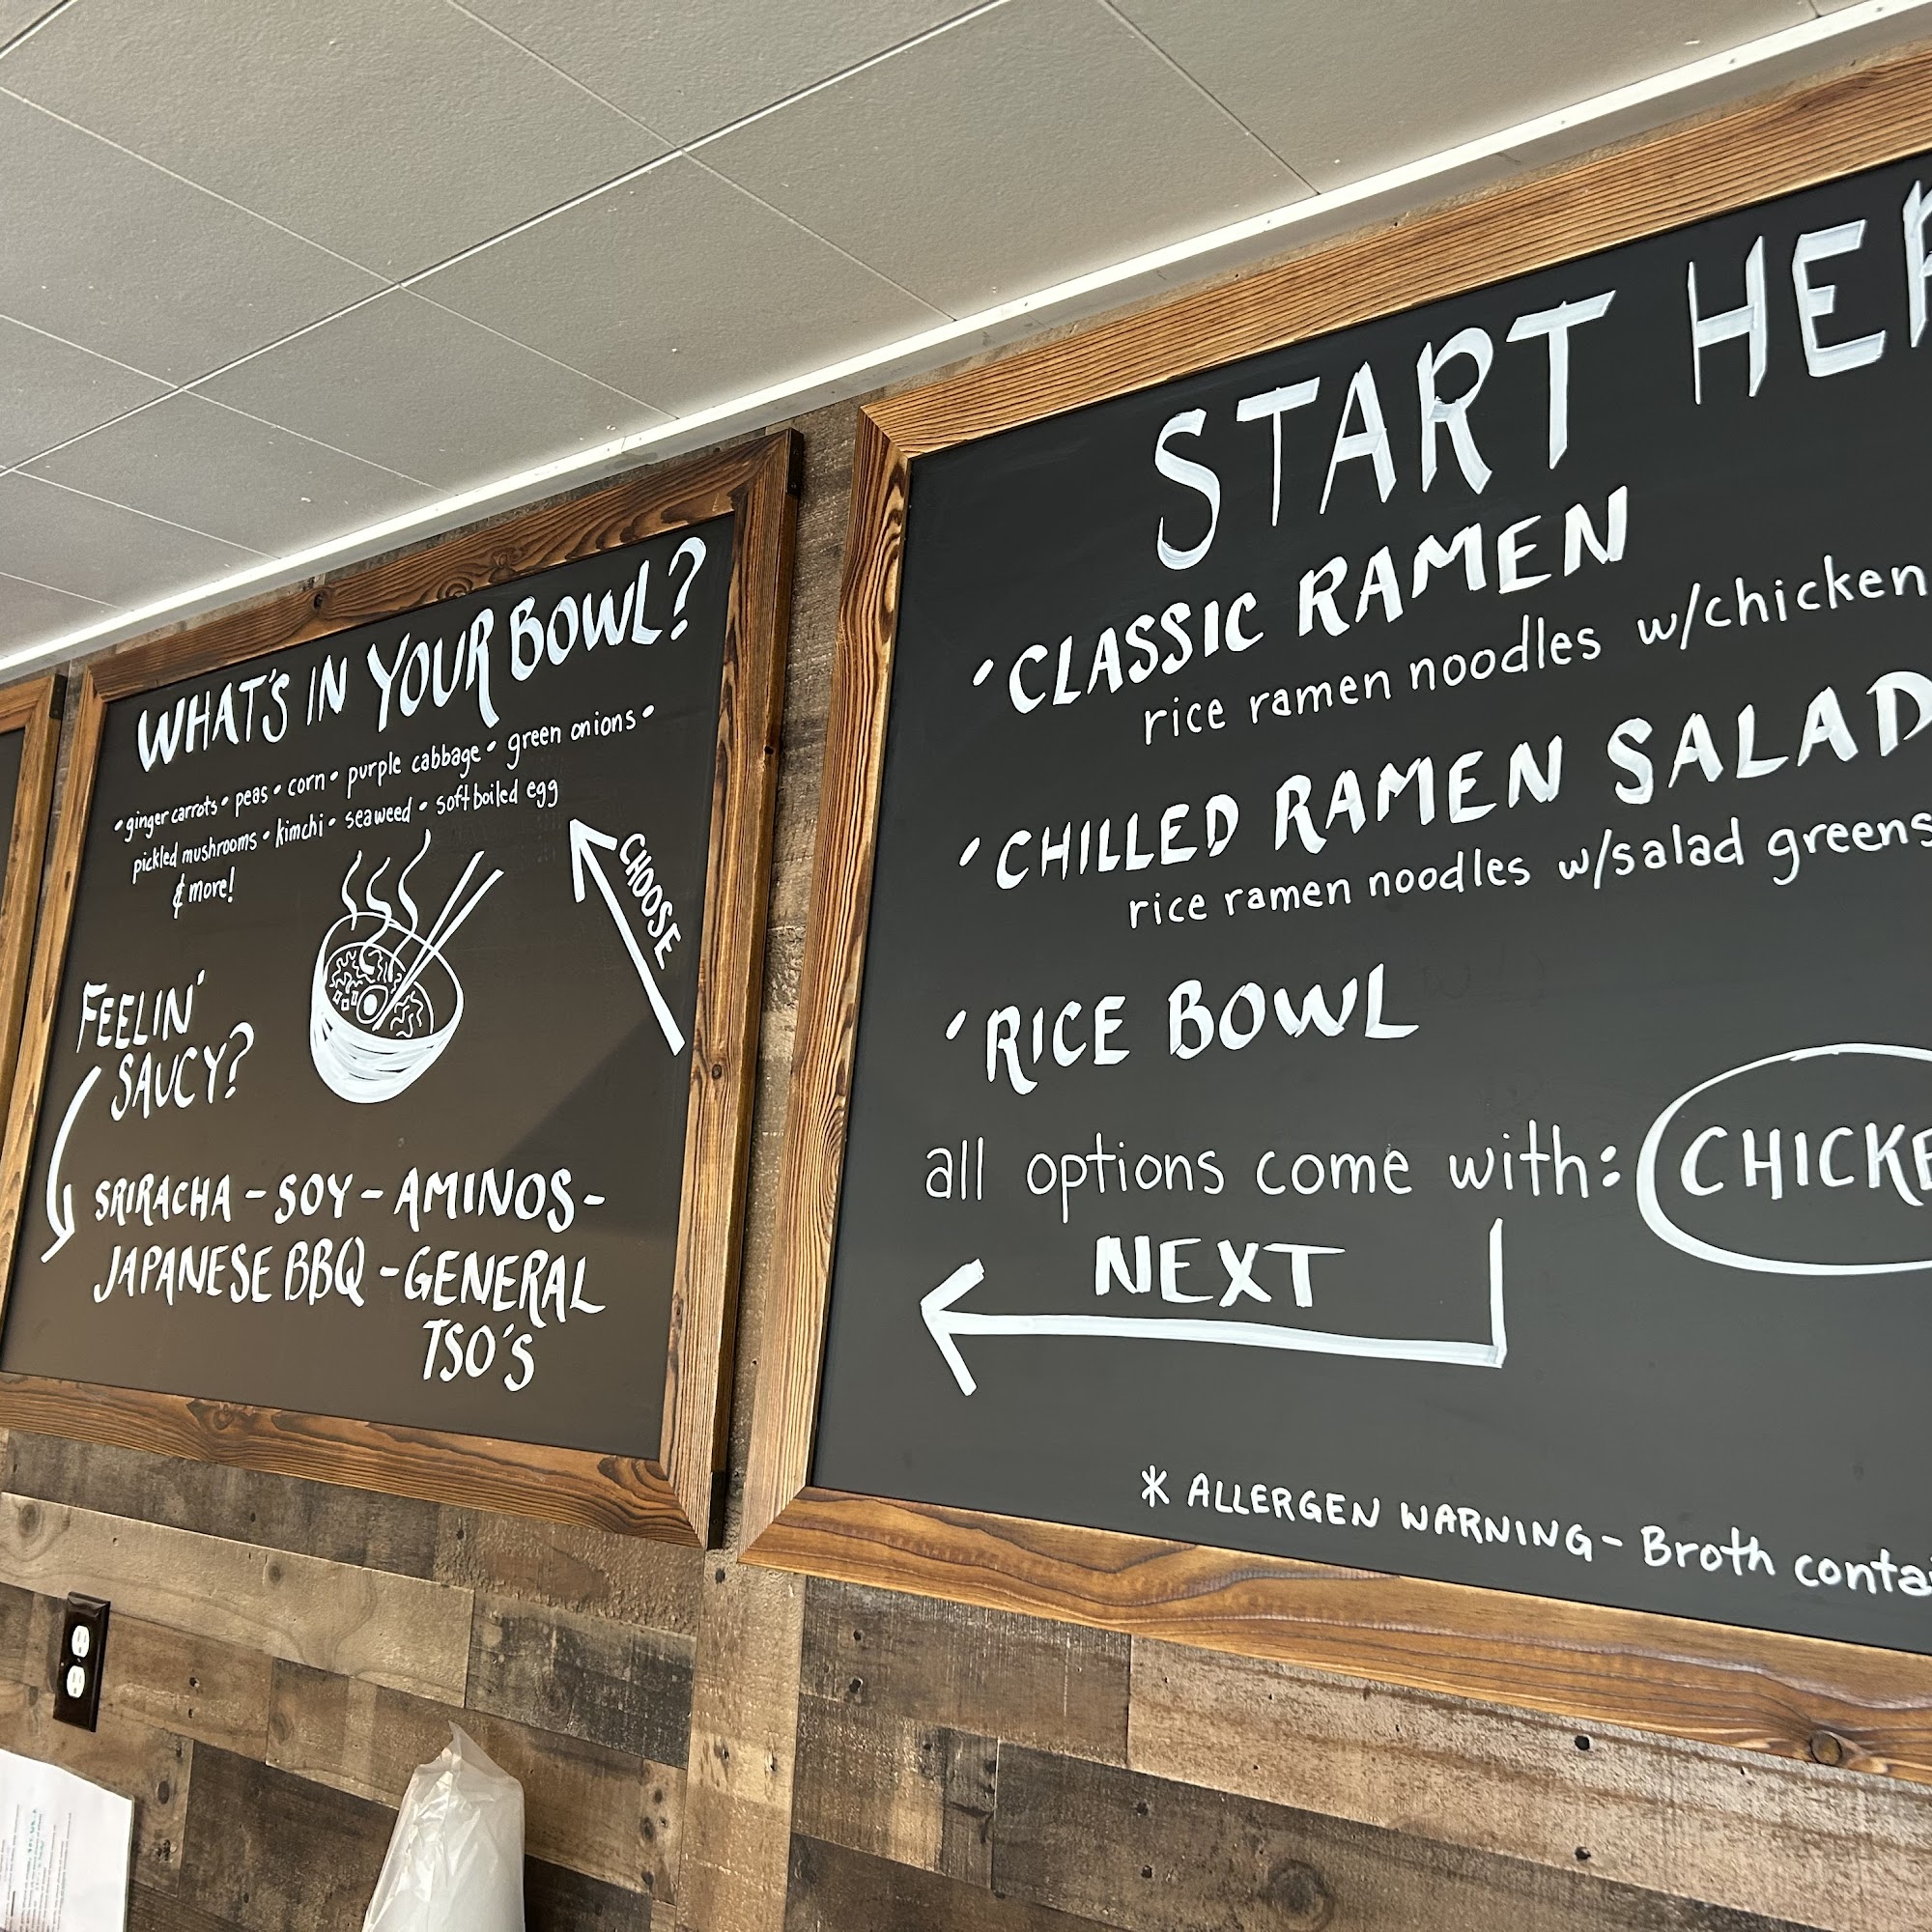 WHAT'S IN YOUR BOWL?
• ginger carrots • peas • corn • purple cabbage • green onions •
pickled mushrooms • kimchi • seaweed • soft boiled egg
& more!
CHOOSE
FEELIN'
SAUCY?
SRIRACHA - SOY - AMINOS -
JAPANESE BBQ - GENERAL
TSO'S
START
' CLASSIC RAMEN
rice ramen noodles w/chicken
' CHILLED RAMEN SALAD
rice ramen noodles w/salad greens
' RICE BOWL
all options come with:
NEXT
* ALLERGEN WARNING - Broth